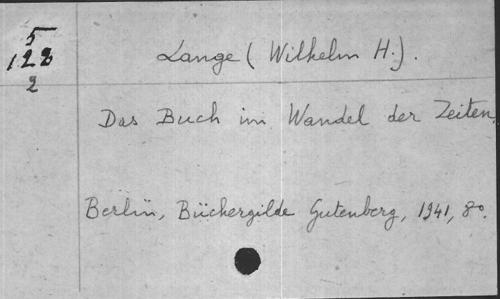 5
122
2
Lange (Wilhelm H.).
Das Buch im Wandel der Zeiten.
Berlin, Büchergilde Gutenberg, 1941, 8º.